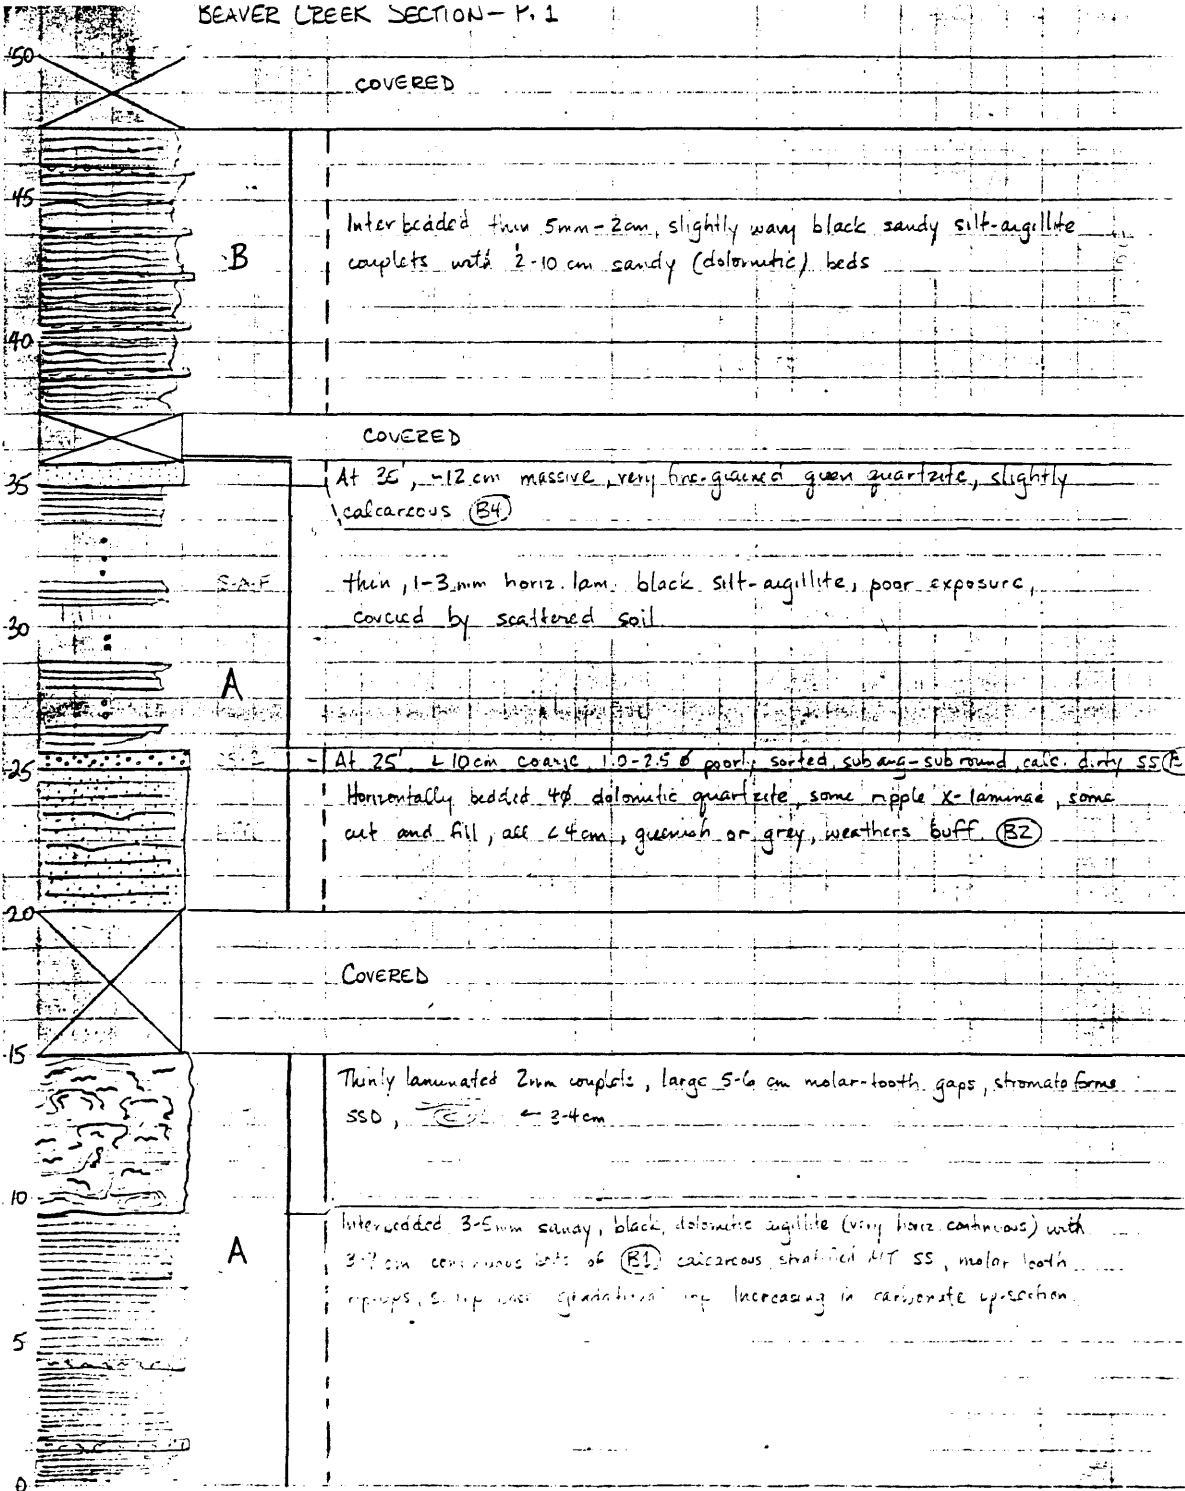 BEAVER CREEK SECTION - P. 1
50
COVERED
45
Interbedded thin 5mm-2cm, slightly wavy black sandy silt-argillite
B
couplets with 2-10 cm sandy (dolomitic) beds
40
COVERED
35
At 35', ~12 cm massive, very fine-grained green quartzite, slightly
calcareous (B4)
S-A-F
thin, 1-3 mm horiz. lam. black silt-argillite, poor exposure,
covered by scattered soil
30
A
25
At 25' 10cm coarse, 1.0-2.5 ø poorly sorted, subang-subround, calc. dirty SS
Horizontally bedded 4ø dolomitic quartzite, some ripple x-laminae, some
cut and fill, all <4cm, greenish or grey, weathers buff. (B2)
20
COVERED
15
Thinly laminated 2mm couplets, large 5-6 cm molar-tooth gaps, stromatoforms
SSD, ← 3-4cm
10
Interbedded 3-5mm sandy, black, dolomitic argillite (very horiz. continuous) with
A
cm continuous of (B1) calcareous stratified MT SS, molar tooth
rip-ups, gradational top Increasing in carbonate up-section.
5
0